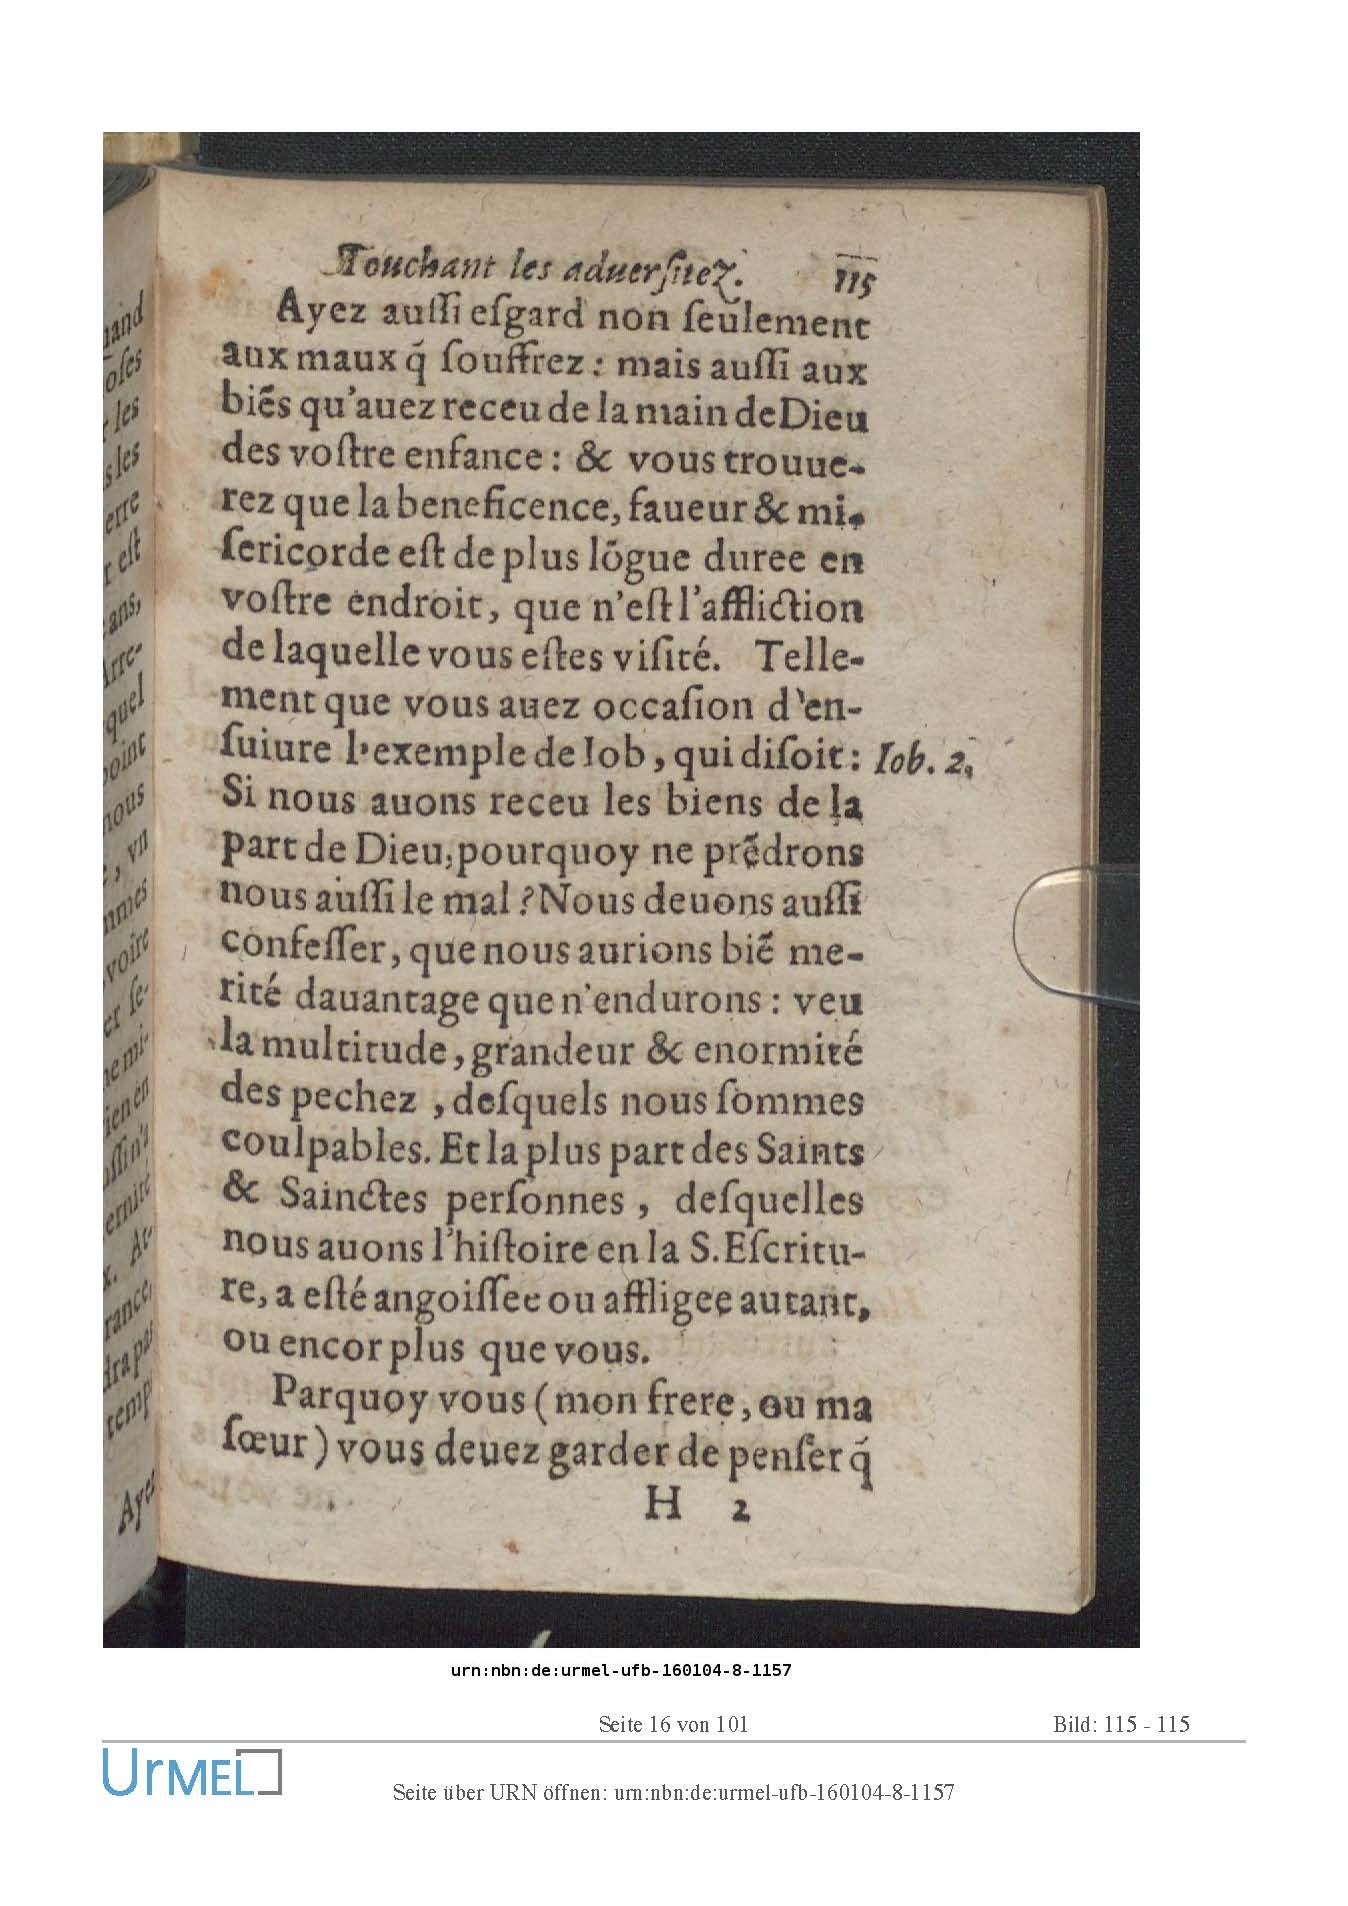 Touchant les aduerſitez. 115
Ayez auſſi eſgard non ſeulement
aux maux q̃ ſouffrez : mais auſſi aux
biẽs qu'auez receu de la main de Dieu
des voſtre enfance : & vous trouue-
rez que la beneficence, faueur & mi-
ſericorde eſt de plus lõgue duree en
voſtre endroit, que n'eſt l'affliction
de laquelle vous eſtes viſité. Telle-
ment que vous auez occaſion d'en-
ſuiure l'exemple de Iob, qui diſoit : Iob. 2.
Si nous auons receu les biens de la
part de Dieu, pourquoy ne prẽdrons
nous auſſi le mal ? Nous deuons auſſi
confeſſer, que nous aurions biẽ me-
rité dauantage que n'endurons : veu
la multitude, grandeur & enormité
des pechez , deſquels nous ſommes
coulpables. Et la plus part des Saints
& Sainctes perſonnes , deſquelles
nous auons l'hiſtoire en la S. Eſcritu-
re, a eſté angoiſſee ou affligee autant,
ou encor plus que vous.
Parquoy vous ( mon frere, ou ma
ſœur ) vous deuez garder de penſer q̃
H 2
oſes
les
s les
erre
eſt
ans,
quel
point
nous
, vn
mmes
voire
Aye
urn:nbn:de:urmel-ufb-160104-8-1157
Seite 16 von 101 Bild: 115 - 115
UrMEL
Seite über URN öffnen: urn:nbn:de:urmel-ufb-160104-8-1157